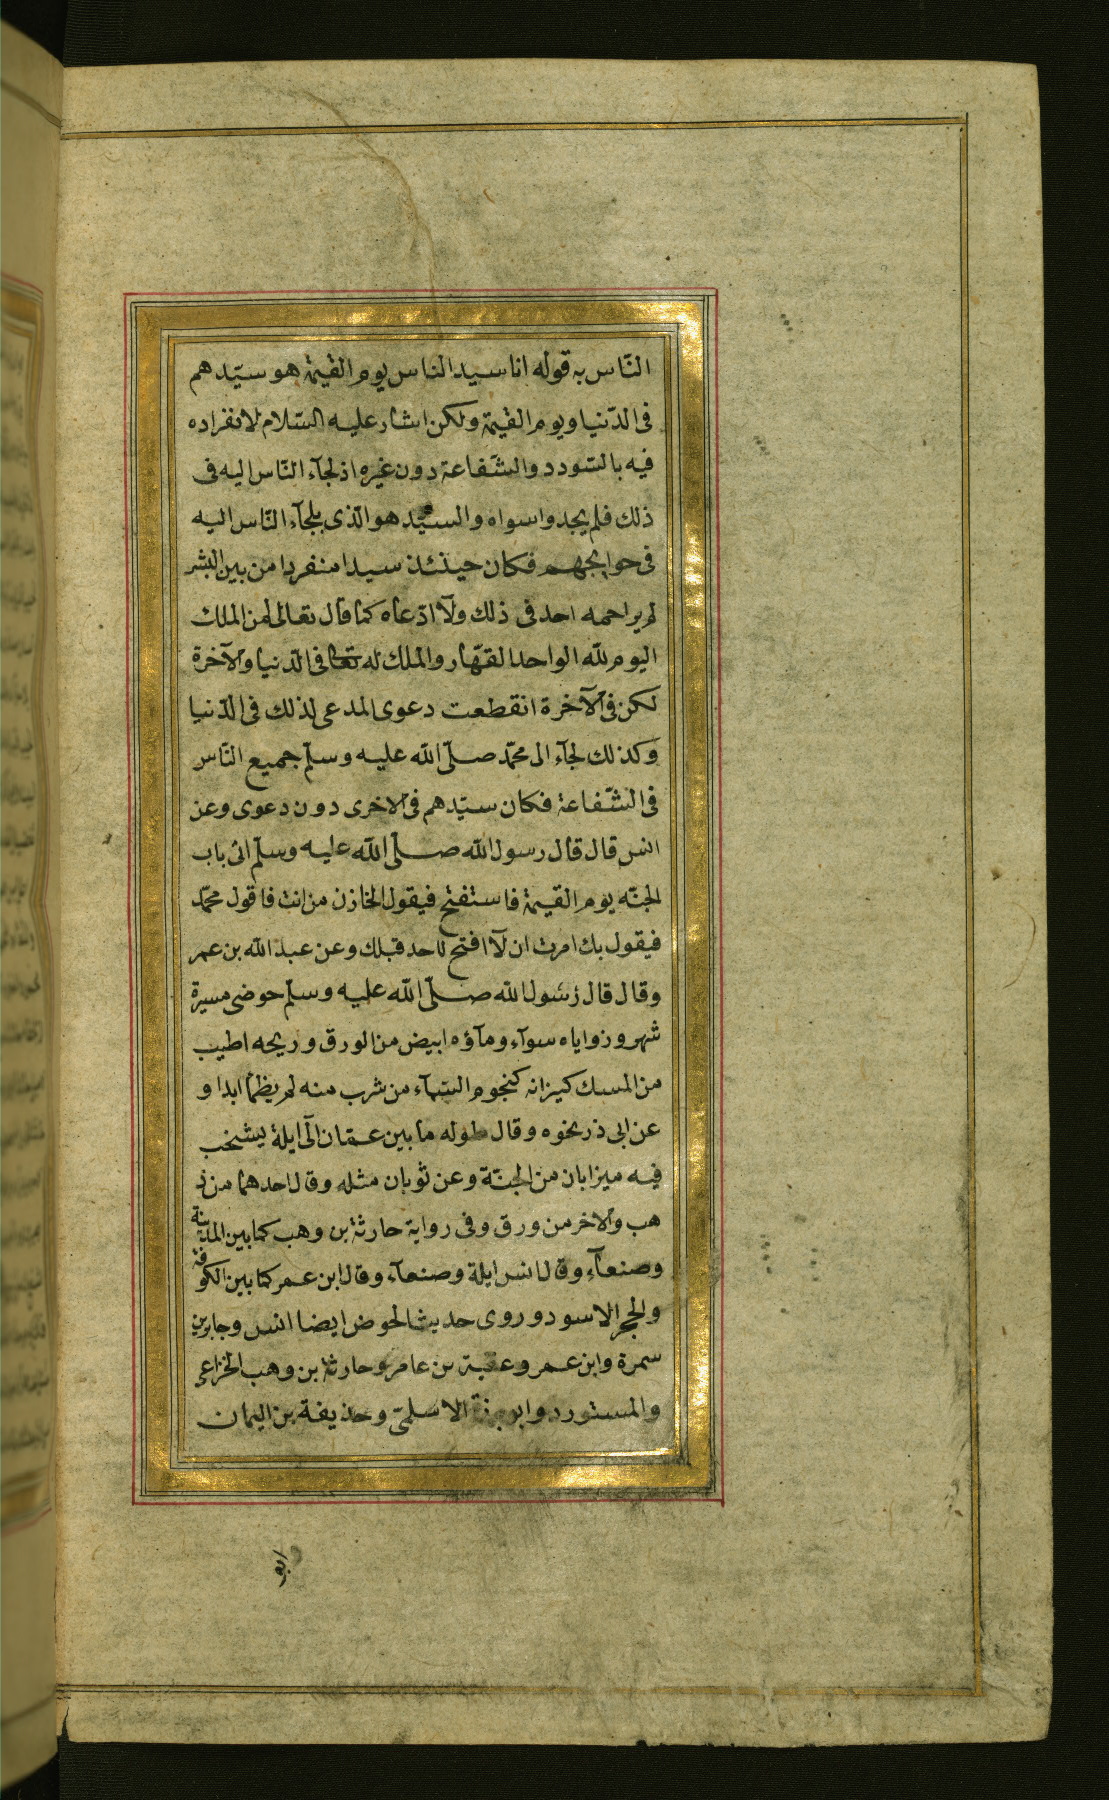 النّاس به قوله انا سيد الناس يوم القيٰمة هو سيّدهم
فى الدّنيا ويوم القيٰمة ولكن اشار عليه السّلام لانفراده
فيه بالسّودد والشّفاعة دون غيره اذ لجآء النّاس اليه فى
ذلك فلم يجدوا سواه والسيّد هو الّذى يلجآء النّاس اليه
فى حوايجهم فكان حينئذ سيدا منفردا من بين البشر
لم يزاحمه احد فى ذلك ولآ ادّعاه كما قال تعالى لمن الملك
اليوم للّه الواحد القهّار والملك له تعالى فى الدّنيا والآخرة
لكن فى الآخرة انقطعت دعوى المدعى لذلك فى الدّنيا
وكذلك لجآء الى محمّد صلّى اللّه عليه وسلّم جميع النّاس
فى الشّفاعة فكان سيّدهم فى الاخرى دون دعوى وعن
انس قال قال رسول اللّه صلّى اللّه عليه وسلّم اتى باب
الجنّه يوم القيٰمة فاستفتح فيقول الخازن من انت فاقول محمّد
فيقول بك امرت ان لآ افتح لاحد قبلك وعن عبد اللّه بن عمر
وقال قال رسول اللّه صلّى اللّه عليه وسلّم حوضى مسيرة
شهر وزواياه سوآء ومآؤه ابيض من الورق وريحه اطيب
من المسك كيزانه كنجوم السّمآء من شرب منه لم يظمأ ابدا و
عن ابى ذر نحوه وقال طوله ما بين عمّان الى ايلة يشخب
فيه ميزابان من الجنّة وعن ثوبان مثله وقال احدهما من ذ
هب والاخر من ورق وفى رواية حارثة بن وهب كما بين المدينة
وصنعآء وقال انس ايلة وصنعآء وقال ابن عمر كما بين الكوفة
والحجر الاسود وروى حديث الحوض ايضا انس وجابر بن
سمرة وابن عمر وعقبة بن عامر وحارثة بن وهب الخزاعى
والمستورد وابو برزة الاسلمىّ وحذيفة بن اليمان
ابو